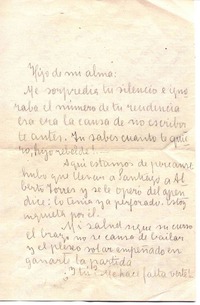 Hijo de mi alma:
Me sorpredia tu silencio e igno
raba el número de tu residencia
era era la causa de no escribir
te antes. Tu sabes cuanto te quie
ro, hijo rebelde!
Aquí estamos de
hubo que llevar a Santiago a Al
berto Torres y se le operó del apen
dice: lo tenía ya perforado. Estoy
inquieta por él.
Mi salud sigue su curso
el brazo no se cansa de bailar
y el plexo solar empeñado en
ganarle la partida
me haces falta